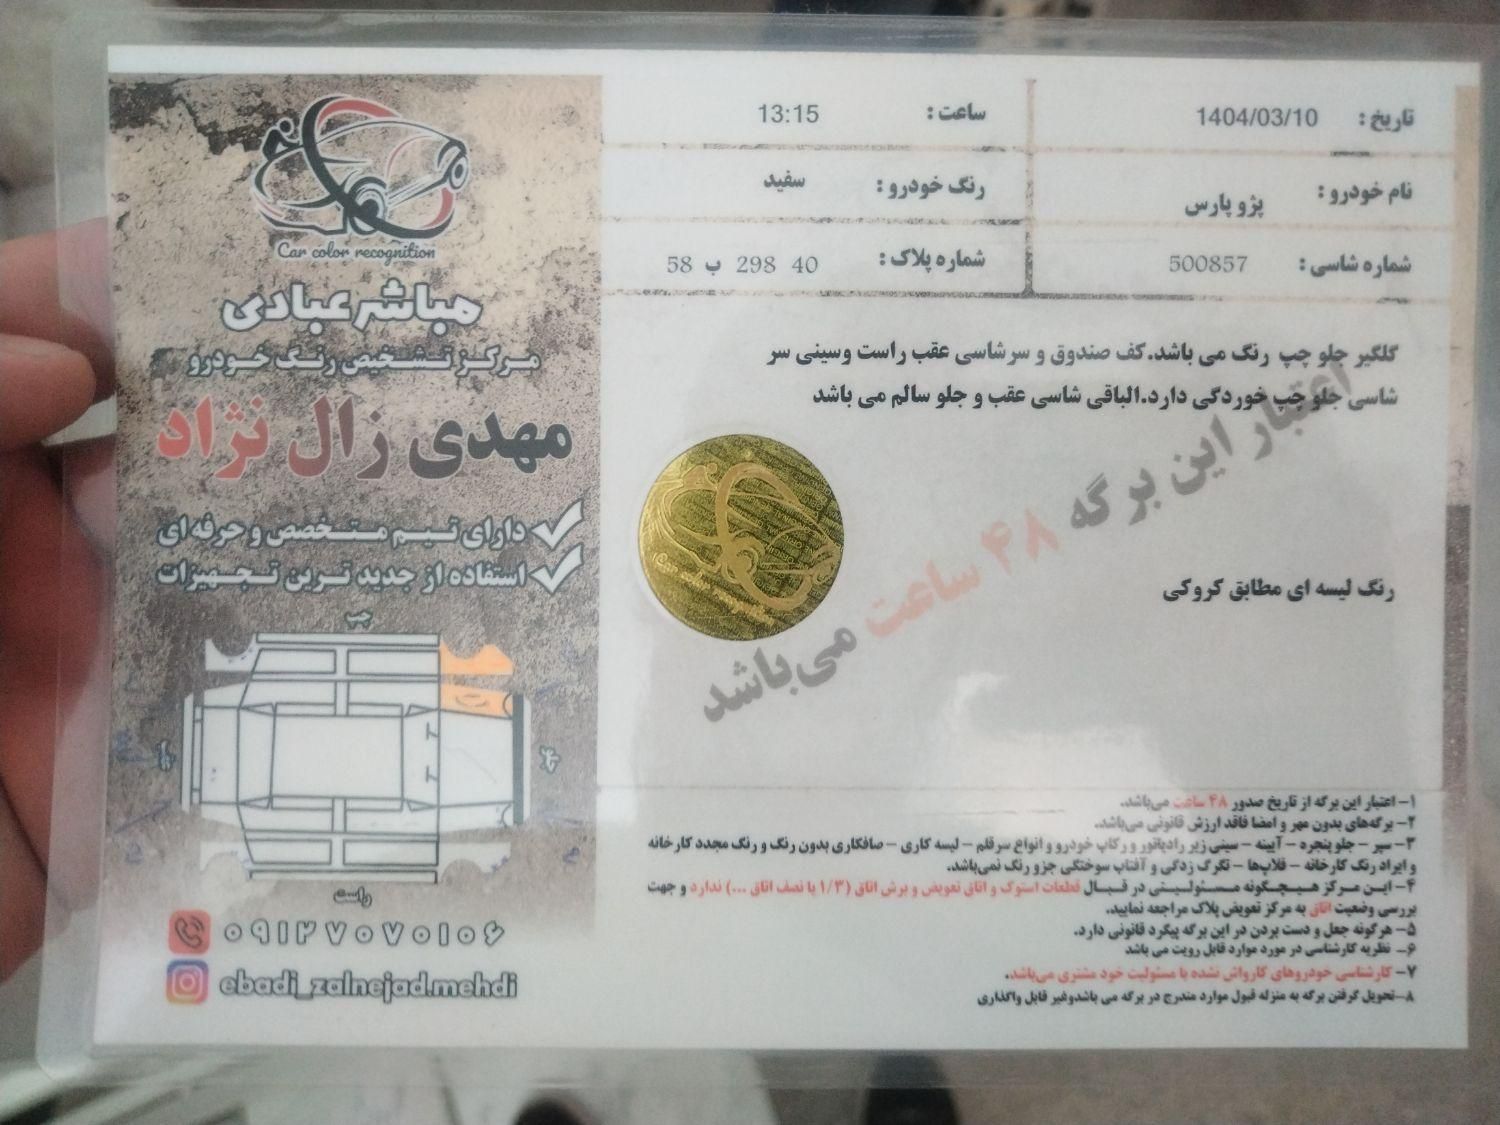 تاریخ : 1404/03/10
ساعت : 13:15
نام خودرو : پژو پارس
رنگ خودرو : سفید
شماره شاسی : 500857
شماره پلاک : 40 298 ب 58
گلگیر جلو چپ رنگ می باشد.کف صندوق و سرشاسی عقب راست وسینی سر
شاسی جلو چپ خوردگی دارد.الباقی شاسی عقب و جلو سالم می باشد
اعتبار این برگه ۴۸ ساعت می‌باشد
رنگ لیسه ای مطابق کروکی
۱- اعتبار این برگه از تاریخ صدور ۴۸ ساعت می‌باشد.
۲- برگه‌های بدون مهر و امضا فاقد ارزش قانونی می‌باشد.
۳- سپر - جلو پنجره - آیینه - سینی زیر رادیاتور و رکاپ خودرو و انواع سرقلم - لیسه کاری - صافکاری بدون رنگ و رنگ مجدد کارخانه
و ایراد رنگ کارخانه - قلاب‌ها - تگرگ زدگی و آفتاب سوختگی جزو رنگ نمی‌باشد.
۴- این مرکز هیچگونه مسئولیتی در قبال قطعات استوک و اتاق تعویض و برش اتاق (۱/۳ یا نصف اتاق ...) ندارد و جهت
بررسی وضعیت اتاق به مرکز تعویض پلاک مراجعه نمایید.
۵- هرگونه جعل و دست بردن در این برگه پیگرد قانونی دارد.
۶- نظریه کارشناسی در مورد موارد قابل رویت می باشد
۷- کارشناسی خودروهای کارواش نشده با مسئولیت خود مشتری می‌باشد.
۸-تحویل گرفتن برگه به منزله قبول موارد مندرج در برگه می باشدوغیر قابل واگذاری
Car color recognition
مباشر عبادی
مرکز تشخیص رنگ خودرو
مهدی زال نژاد
دارای تیم متخصص و حرفه ای
استفاده از جدید ترین تجهیزات
چپ
جلو
راست
۰۹۱۲۷۰۷۰۱۰۶
ebadi_zalnejad.mehdi